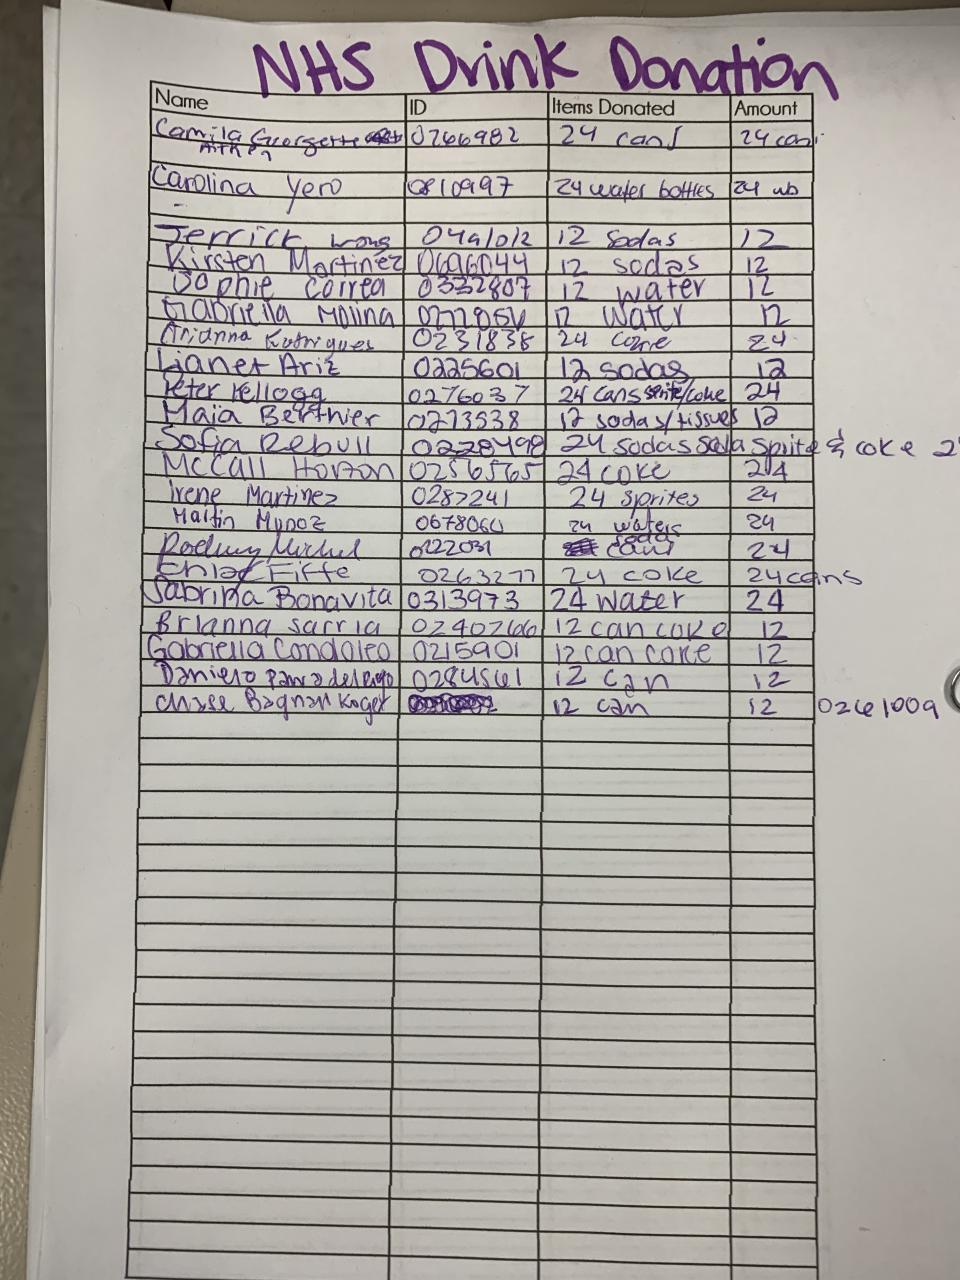 NHS Drink Donation
Name ID Items Donated Amount
Camila Georgette 0766982 24 cans 24 cans
Aitken
Carolina Yero 0810997 24 water bottles 24 wb
Jerrick Wong 12 sodas 12
Kirsten Martinez 0696044 12 sodas 12
Sophie Correa 0332807 12 water 12
Gabriella Molina 12 Water 12
Arianna Rodriguez 0231838 24 coke 24
Lianet Ariz 0225601 12 sodas 12
Peter Kellogg 0276037 24 cans sprite/coke 24
Maia Berthier 0273538 12 sodas/tissues 12
Sofia Rebull 0228498 24 sodas soda sprite & coke
McCall Horton 0256565 24 COKE 24
Irene Martinez 0287241 24 sprites 24
Martin Munoz 0678060 24 waters 24
Rodney Michel soda cans 24
Chloe Fiffe 0263277 24 coke 24 cans
Sabrina Bonavita 0313973 24 water 24
Brianna Sarria 0240766 12 can coke 12
Gabriella Condoleo 0215901 12 can coke 12
0284561 12 can 12
Chase Bagnall Koger 12 can 12 0261009